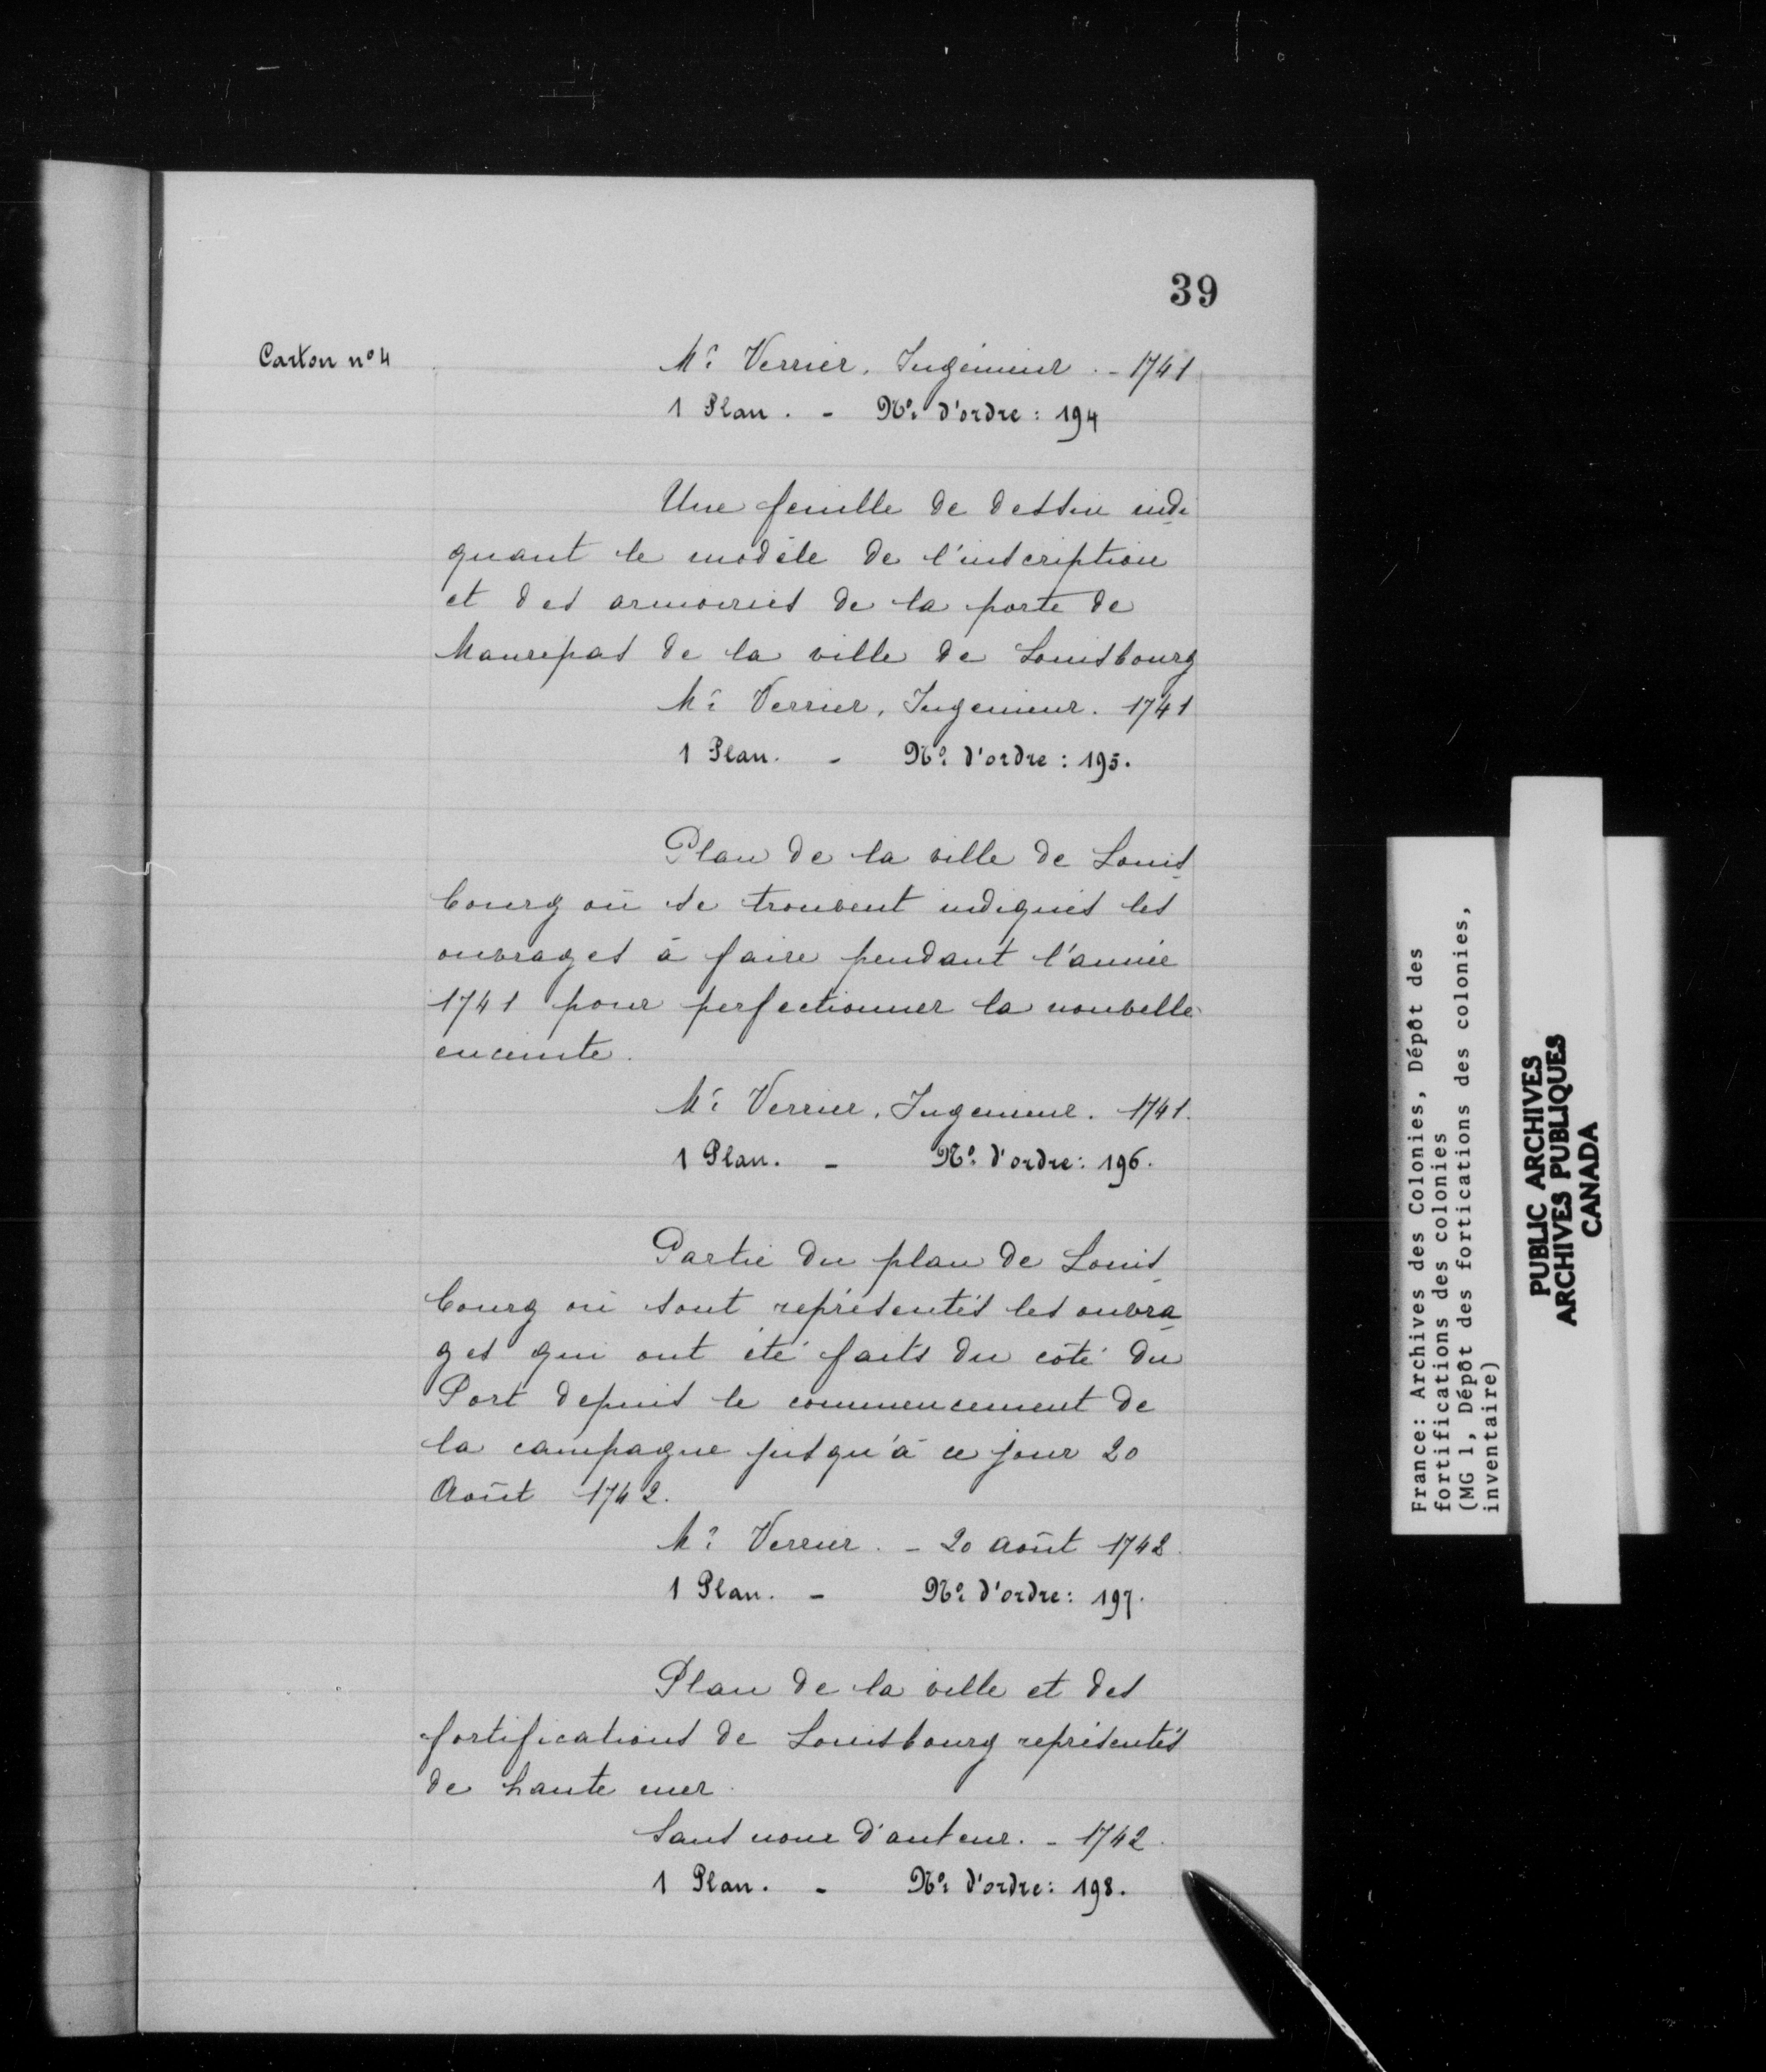 39
Carton nº 4
Mr Verrier, Ingénieur. - 1741
1 Plan. - Nº d'ordre : 194
Une feuille de dessin indi-
quant le modèle de l'inscription
et des armoiries de la porte de
Maurepas de la ville de Louisbourg
Mr Verrier, Ingenieur. 1741
1 Plan. - Nº d'ordre : 195.
Plan de la ville de Louis-
bourg où se trouvent indiqués les
ouvrages à faire pendant l'année
1741 pour perfectionner la nouvelle
enceinte.
Mr Verrier, Ingenieur. 1741.
1 Plan. - Nº d'ordre : 196.
Partie du plan de Louis-
bourg où sont représentés les ouvra-
ges qui ont été faits du côté du
Port depuis le commencement de
la campagne jusqu'à ce jour 20
Août 1742.
Mr Verrier. - 20 août 1742.
1 Plan. - Nº d'ordre : 197.
Plan de la ville et des
fortifications de Louisbourg représentés
de haute mer.
Sans nom d'auteur. - 1742.
1 Plan. - Nº d'ordre : 198.
France: Archives des Colonies, Dépôt des
fortifications des colonies
(MG 1, Dépôt des fortications des colonies,
inventaire)
PUBLIC ARCHIVES
ARCHIVES PUBLIQUES
CANADA